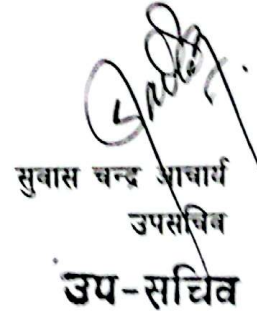 सुवास चन्द्र आचार्य
उपसचिव
उप-सचिव